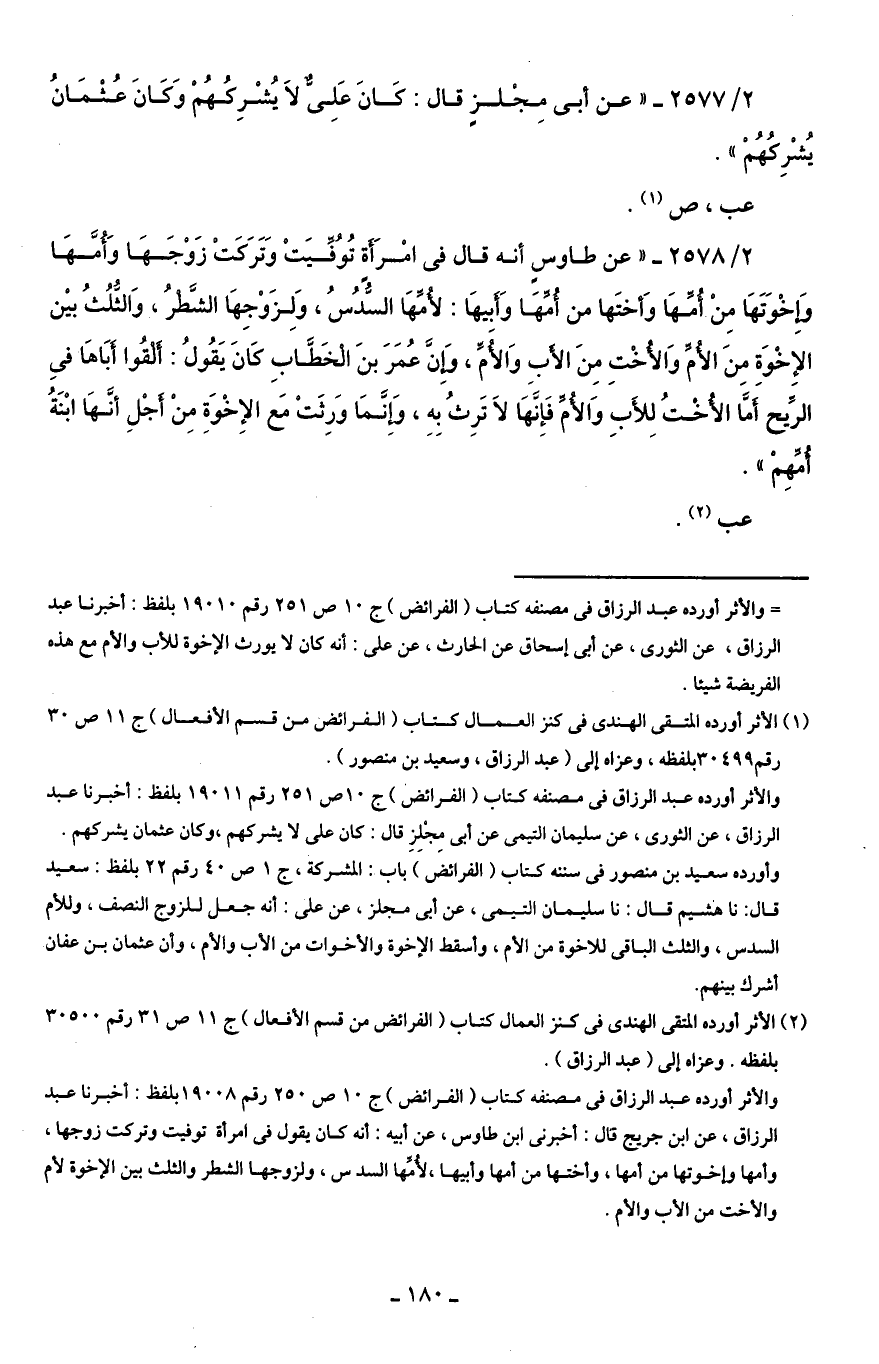 ٢/ ٢٥٧٧ ـ « عـن أبـى مِـجْـلَـزٍ قـال : كَـانَ عَلِىٌّ لاَ يُشْـرِكُـهُمْ وَكَـانَ عُـثْـمَـانُ
يُشْرِكُهُمْ » .
عب ، ص (١) .
٢/ ٢٥٧٨ ـ « عن طـاوسٍ أنـه قـال فى امْـرَأَةٍ تُوُفِّـيَتْ وَتَرَكَتْ زَوْجَـهَـا وَأُمَّـهَـا
وَإِخْوَتَهَا مِنْ أُمِّـهَا وَأختَها من أُمِّهَـا وَأَبِيهَا : لأُمِّهَا السُّدُسُ ، وَلـزَوْجِهَا الشَّطْرُ ، وَالثُّلُثُ بيْن
الإِخْوَةِ مِنَ الأُمِّ وَالأُخْتِ مِنَ الأَبِ وَالأُمِّ ، وَإِنَّ عُمَرَ بنَ الخَطَّـابِ كَانَ يَقُولُ : أَلْقُوا أَبَاهَا فِى
الرِّيحِ أمَّا الأُخْـتُ لِلأَبِ وَالأُمِّ فَإِنَّهَا لاَ تَرِثُ بِهِ ، وَإِنَّمَا وَرِثَتْ مَع الإِخْوَةِ مِنْ أَجْلِ أَنَّـهَا ابْنَةُ
أُمِّهِمْ » .
عب (٢) .
= والأثر أورده عبـد الرزاق فى مصنفه كتـاب ( الفرائض ) ج ١٠ ص ٢٥١ رقم ١٩٠١٠ بلفظ : أخبرنـا عبد
الرزاق ، عن الثورى ، عن أبى إسحاق عن الحارث ، عن على : أنه كان لا يورث الإخوة للأب والأم مع هذه
الفريضة شيئا .
(١) الأثر أورده المتقى الهـندى فى كنز العـمـال كـتـاب ( الـفـرائض مـن قـسـم الأفـعـال ) ج ١١ ص ٣٠
رقم ٣٠٤٩٩بلفظه ، وعزاه إلى ( عبد الرزاق ، وسعيد بن منصور ) .
والأثر أورده عـبـد الرزاق فى مـصنفه كـتاب ( الفـرائض ) ج ١٠ص ٢٥١ رقم ١٩٠١١ بلفظ : أخبـرنا عـبد
الرزاق ، عن الثورى ، عن سليمان التيمى عن أبى مِجْلِزٍ قال : كان على لا يشركهم ،وكان عثمان يشركهم .
وأورده سعيد بن منصور فى سننه كـتاب ( الفرائض ) باب : المشـركة ، ج ١ ص ٤٠ رقم ٢٢ بلفظ : سعـيد
قـال: نا هشـيم قـال : نا سليـمان التـيمى ، عن أبى مـجلز ، عن على : أنه جـعـل للـزوج النصف ، وللأم
السدس ، والثلث الباقى للاخوة من الأم ، وأسقط الإخوة والأخـوات من الأب والأم ، وأن عثمان بـن عفان
أشرك بينهم.
(٢) الأثر أورده المتقى الهندى فى كـنز العمال كتـاب ( الفرائض من قسم الأفـعال ) ج ١١ ص ٣١ رقم ٣٠٥٠٠
بلفظه . وعزاه إلى ( عبد الرزاق ) .
والأثر أورده عـبد الرزاق فى مـصنفه كـتاب ( الفـرائض ) ج ١٠ ص ٢٥٠ رقم ١٩٠٠٨بلفظ : أخبـرنا عـبد
الرزاق ، عن ابن جريج قال : أخبرنى ابن طاوس ، عن أبيه : أنه كـان يقول فى امرأة توفيت وتركت زوجها ،
وأمها وإخـوتها من أمها ، وأختـها من أمها وأبيهـا ،لأُمِّها السد س ، ولزوجهـا الشطر والثلث بين الإخوة لأم
والأخت من الأب والأم .
ـ ١٨٠ ـ